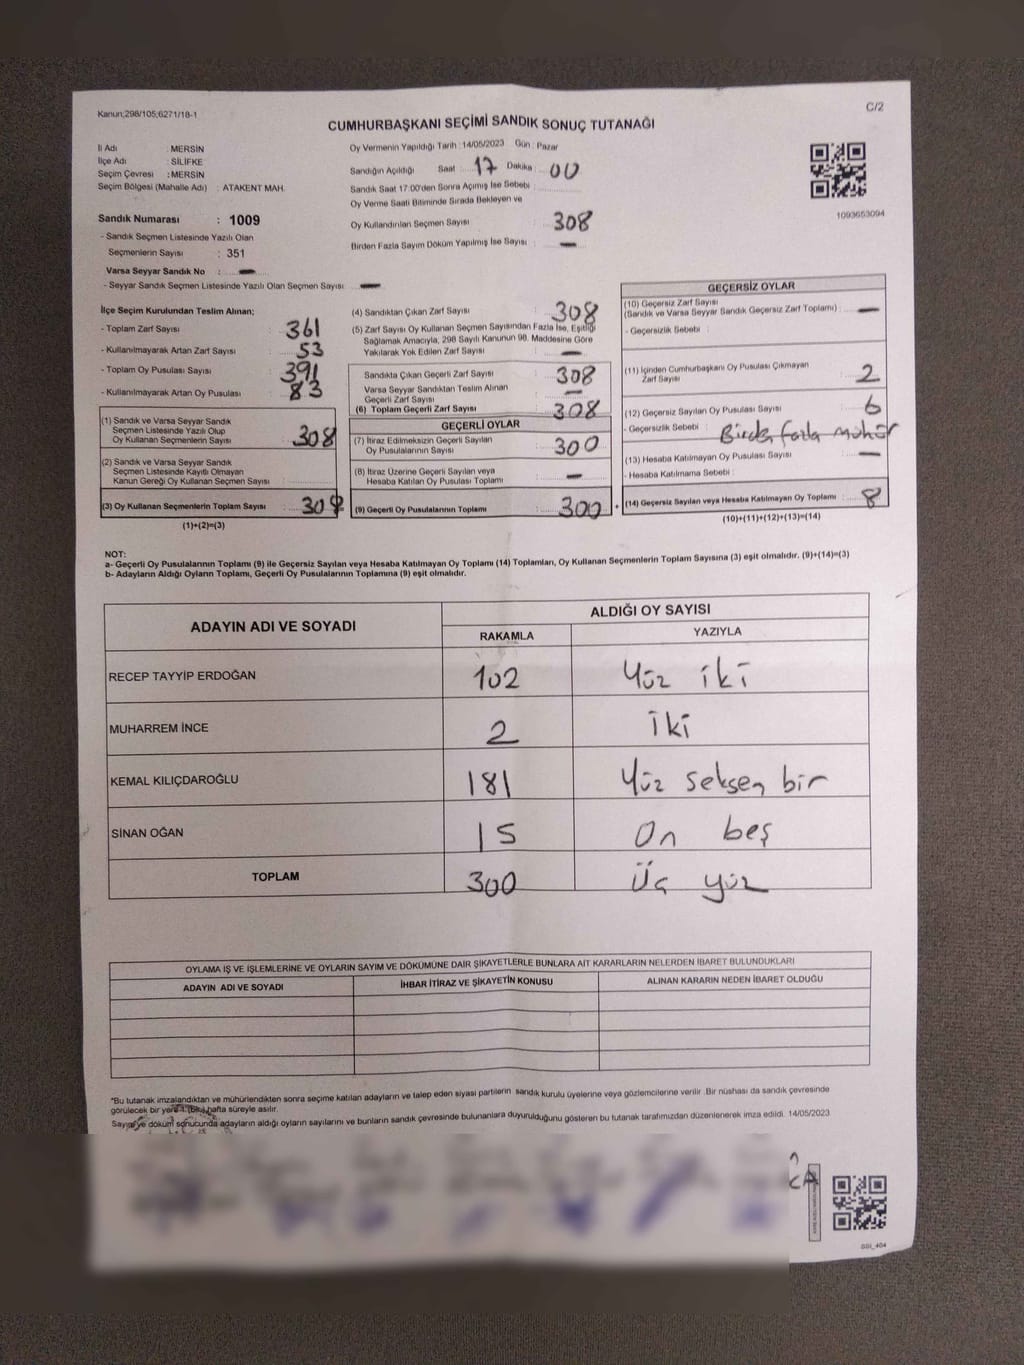 Kanun;298/105;6271/18-1
C/2
CUMHURBAŞKANI SEÇİMİ SANDIK SONUÇ TUTANAĞI
İl Adı : MERSİN
İlçe Adı : SİLİFKE
Seçim Çevresi : MERSİN
Seçim Bölgesi (Mahalle Adı) : ATAKENT MAH.
Sandık Numarası : 1009
- Sandık Seçmen Listesinde Yazılı Olan
Seçmenlerin Sayısı : 351
Varsa Seyyar Sandık No : —
- Seyyar Sandık Seçmen Listesinde Yazılı Olan Seçmen Sayısı : —
Oy Vermenin Yapıldığı Tarih : 14/05/2023 Gün : Pazar
Sandığın Açıldığı Saat 17 Dakika 00
Sandık Saat 17.00'den Sonra Açılmış İse Sebebi :
Oy Verme Saati Bitiminde Sırada Bekleyen ve
Oy Kullandırılan Seçmen Sayısı : 308
Birden Fazla Sayım Döküm Yapılmış İse Sayısı : —
1093653094
İlçe Seçim Kurulundan Teslim Alınan;
- Toplam Zarf Sayısı : 361
- Kullanılmayarak Artan Zarf Sayısı : 53
- Toplam Oy Pusulası Sayısı : 391
- Kullanılmayarak Artan Oy Pusulası : 83
(1) Sandık ve Varsa Seyyar Sandık
Seçmen Listesinde Yazılı Olup
Oy Kullanan Seçmenlerin Sayısı : 308
(2) Sandık ve Varsa Seyyar Sandık
Seçmen Listesinde Kayıtlı Olmayan
Kanun Gereği Oy Kullanan Seçmen Sayısı :
(3) Oy Kullanan Seçmenlerin Toplam Sayısı : 308
(1)+(2)=(3)
(4) Sandıktan Çıkan Zarf Sayısı : 308
(5) Zarf Sayısı Oy Kullanan Seçmen Sayısından Fazla İse, Eşitliği
Sağlamak Amacıyla, 298 Sayılı Kanunun 98. Maddesine Göre
Yakılarak Yok Edilen Zarf Sayısı : —
Sandıkta Çıkan Geçerli Zarf Sayısı : 308
Varsa Seyyar Sandıktan Teslim Alınan
Geçerli Zarf Sayısı : —
(6) Toplam Geçerli Zarf Sayısı : 308
GEÇERLİ OYLAR
(7) İtiraz Edilmeksizin Geçerli Sayılan
Oy Pusulalarının Sayısı : 300
(8) İtiraz Üzerine Geçerli Sayılan veya
Hesaba Katılan Oy Pusulası Toplamı : —
(9) Geçerli Oy Pusulalarının Toplamı : 300
+
GEÇERSİZ OYLAR
(10) Geçersiz Zarf Sayısı
(Sandık ve Varsa Seyyar Sandık Geçersiz Zarf Toplamı) : —
- Geçersizlik Sebebi :
(11) İçinden Cumhurbaşkanı Oy Pusulası Çıkmayan
Zarf Sayısı : 2
(12) Geçersiz Sayılan Oy Pusulası Sayısı : 6
- Geçersizlik Sebebi : Birden fazla mühür
(13) Hesaba Katılmayan Oy Pusulası Sayısı : —
- Hesaba Katılmama Sebebi :
(14) Geçersiz Sayılan veya Hesaba Katılmayan Oy Toplamı : 8
(10)+(11)+(12)+(13)=(14)
NOT:
a- Geçerli Oy Pusulalarının Toplamı (9) ile Geçersiz Sayılan veya Hesaba Katılmayan Oy Toplamı (14) Toplamları, Oy Kullanan Seçmenlerin Toplam Sayısına (3) eşit olmalıdır. (9)+(14)=(3)
b- Adayların Aldığı Oyların Toplamı, Geçerli Oy Pusulalarının Toplamına (9) eşit olmalıdır.
ADAYIN ADI VE SOYADI ALDIĞI OY SAYISI
RAKAMLA YAZIYLA
RECEP TAYYİP ERDOĞAN 102 Yüz iki
MUHARREM İNCE 2 İki
KEMAL KILIÇDAROĞLU 181 Yüz seksen bir
SİNAN OĞAN 15 On beş
TOPLAM 300 Üç yüz
OYLAMA İŞ VE İŞLEMLERİNE VE OYLARIN SAYIM VE DÖKÜMÜNE DAİR ŞİKAYETLERLE BUNLARA AİT KARARLARIN NELERDEN İBARET BULUNDUKLARI
ADAYIN ADI VE SOYADI İHBAR İTİRAZ VE ŞİKAYETİN KONUSU ALINAN KARARIN NEDEN İBARET OLDUĞU
*Bu tutanak imzalandıktan ve mühürlendikten sonra seçime katılan adayların ve talep eden siyasi partilerin sandık kurulu üyelerine veya gözlemcilerine verilir .Bir nüshası da sandık çevresinde
görülecek bir yere 1 (bir) hafta süreyle asılır.
Sayım ve döküm sonucunda adayların aldığı oyların sayılarını ve bunların sandık çevresinde bulunanlara duyurulduğunu gösteren bu tutanak tarafımızdan düzenlenerek imza edildi. 14/05/2023
SSI_404